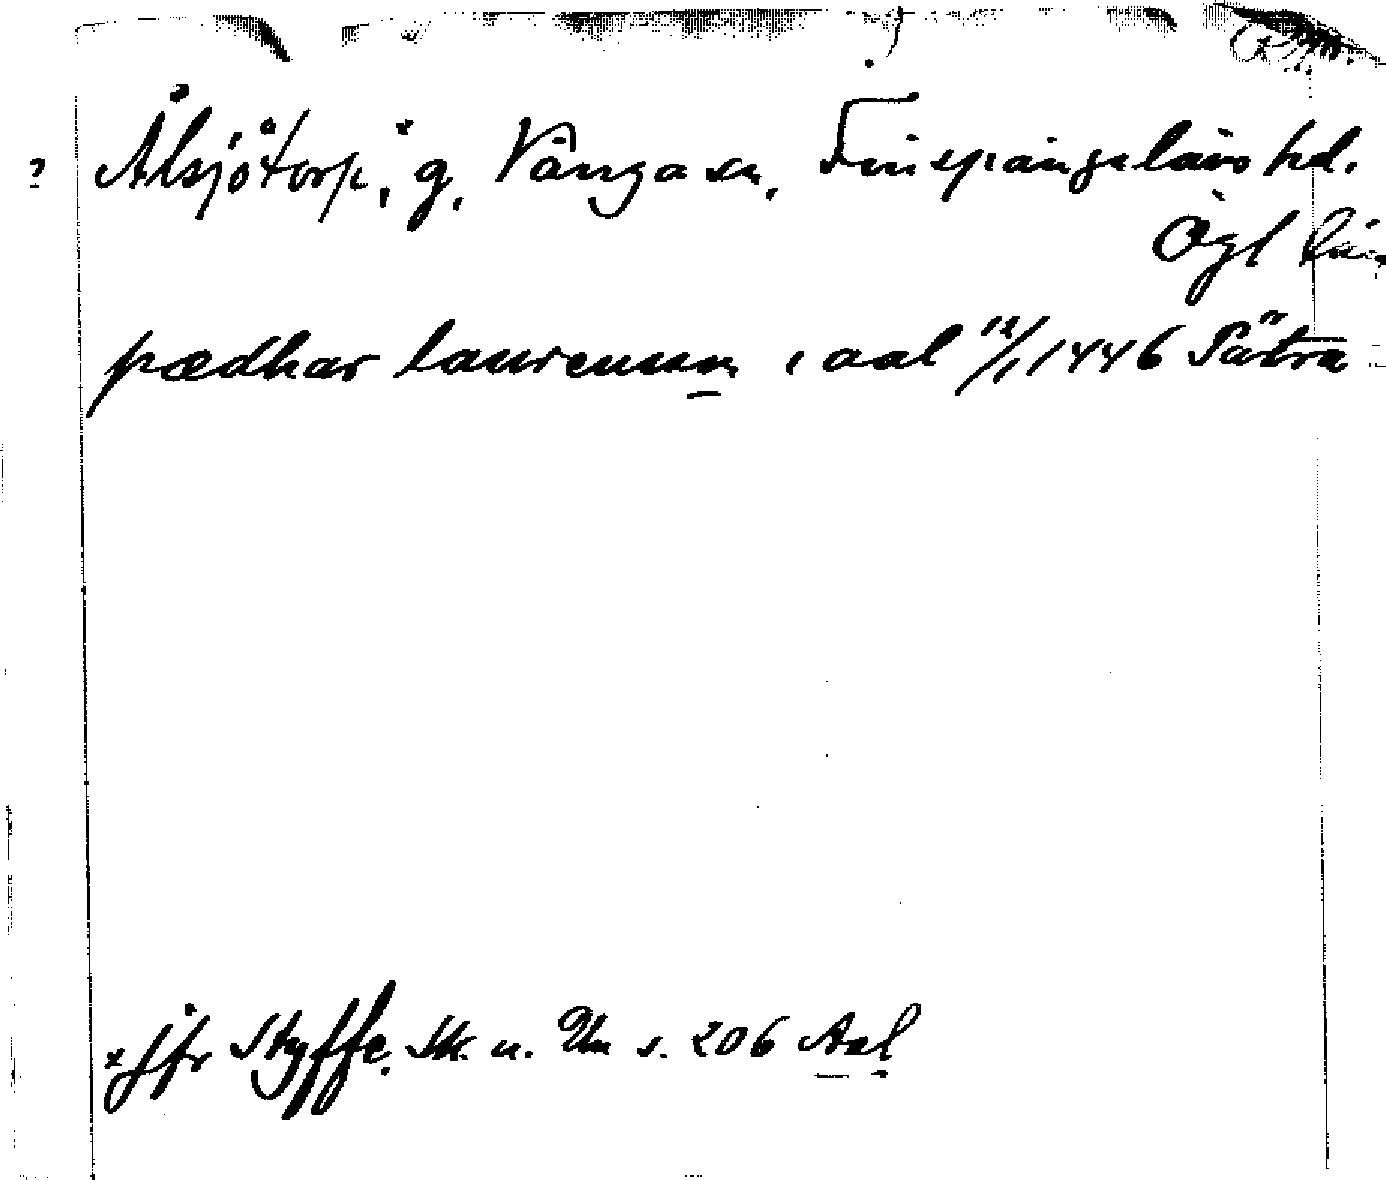 ? Ålsjötorp,ˣ g. Vånga sn, Finspångaläns hd.
Ögl län
pædhar laurensson i aal 12/1 1446 Sätra
x jfr Styffe, Sk. u. Un s. 206 Aal